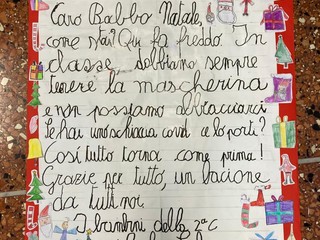 Caro Babbo Natale,
come stai? Qui fa freddo. In
classe, dobbiamo sempre
tenere la mascherina
e non possiamo abbracciarci.
Te hai uno schiaccia covid ce lo porti?
Così tutto torna come prima!
Grazie per tutto, un bacione
da tutti noi.
I bambini della 2ª C